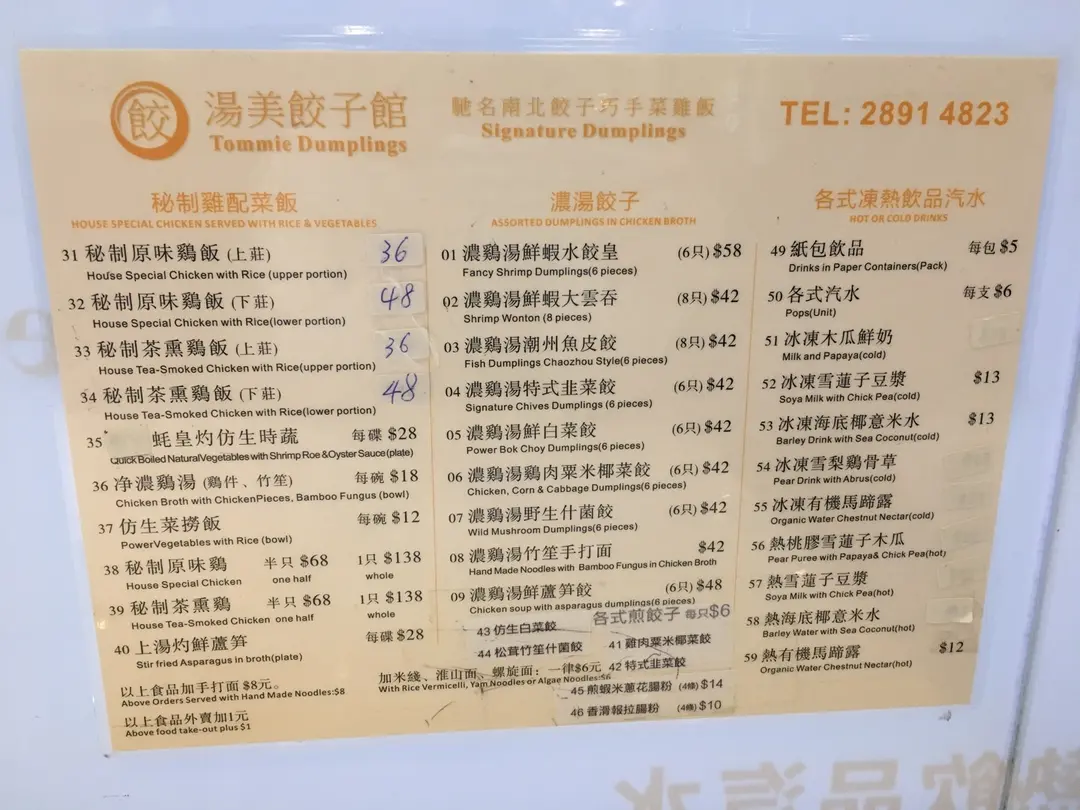 餃
湯美餃子館
Tommie Dumplings
馳名南北餃子巧手菜雞飯
Signature Dumplings
TEL: 2891 4823
秘制雞配菜飯
HOUSE SPECIAL CHICKEN SERVED WITH RICE & VEGETABLES
31 秘制原味鷄飯 (上莊) 36
House Special Chicken with Rice (upper portion)
32 秘制原味鷄飯 (下莊) 48
House Special Chicken with Rice(lower portion)
33 秘制茶熏鷄飯 (上莊) 36
House Tea-Smoked Chicken with Rice(upper portion)
34 秘制茶熏鷄飯 (下莊) 48
House Tea-Smoked Chicken with Rice(lower portion)
35* 蚝皇灼仿生時蔬 每碟 $28
Quick Boiled NaturalVegetables with Shrimp Roe &Oyster Sauce(plate)
36 净濃鷄湯 (鷄件、竹笙) 每碗 $18
Chicken Broth with ChickenPieces, Bamboo Fungus (bowl)
37 仿生菜撈飯 每碗 $12
PowerVegetables with Rice (bowl)
38 秘制原味鷄 半只 $68 1只 $138
House Special Chicken one half whole
39 秘制茶熏鷄 半只 $68 1只 $138
House Tea-Smoked Chicken one half whole
40 上湯灼鮮蘆笋 每碟 $28
Stir fried Asparagus in broth(plate)
以上食品加手打面 $8元。
Above Orders Served with Hand Made Noodles:$8
以上食品外賣加1元
Above food take-out plus $1
加米綫、淮山面、螺旋面：一律$6元
With Rice Vermicelli, Yam Noodles or Algae Noodles:$6
濃湯餃子
ASSORTED DUMPLINGS IN CHICKEN BROTH
01 濃鷄湯鮮蝦水餃皇 (6只) $58
Fancy Shrimp Dumplings(6 pieces)
02 濃鷄湯鮮蝦大雲吞 (8只) $42
Shrimp Wonton (8 pieces)
03 濃鷄湯潮州魚皮餃 (8只) $42
Fish Dumplings Chaozhou Style(6 pieces)
04 濃鷄湯特式韭菜餃 (6只) $42
Signature Chives Dumplings (6 pieces)
05 濃鷄湯鮮白菜餃 (6只) $42
Power Bok Choy Dumplings(6 pieces)
06 濃鷄湯鷄肉粟米椰菜餃 (6只) $42
Chicken, Corn & Cabbage Dumplings(6 pieces)
07 濃鷄湯野生什菌餃 (6只) $42
Wild Mushroom Dumplings(6 pieces)
08 濃鷄湯竹笙手打面 $42
Hand Made Noodles with Bamboo Fungus in Chicken Broth
09 濃鷄湯鮮蘆笋餃 (6只) $48
Chicken soup with asparagus dumplings(6 pieces)
各式煎餃子 每只$6
43 仿生白菜餃
44 松茸竹笙什菌餃 41 雞肉粟米椰菜餃
42 特式韭菜餃
45 煎蝦米蔥花腸粉 (4條) $14
46 香滑報拉腸粉 (4條) $10
各式凍熱飲品汽水
HOT OR COLD DRINKS
49 紙包飲品 每包 $5
Drinks in Paper Containers(Pack)
50 各式汽水 每支 $6
Pops(Unit)
51 冰凍木瓜鮮奶
Milk and Papaya(cold)
52 冰凍雪蓮子豆漿 $13
Soya Milk with Chick Pea(cold)
53 冰凍海底椰意米水 $13
Barley Drink with Sea Coconut(cold)
54 冰凍雪梨鷄骨草
Pear Drink with Abrus(cold)
55 冰凍有機馬蹄露
Organic Water Chestnut Nectar(cold)
56 熱桃膠雪蓮子木瓜
Pear Puree with Papaya& Chick Pea(hot)
57 熱雪蓮子豆漿
Soya Milk with Chick Pea(hot)
58 熱海底椰意米水
Barley Water with Sea Coconut(hot)
59 熱有機馬蹄露 $12
Organic Water Chestnut Nectar(hot)